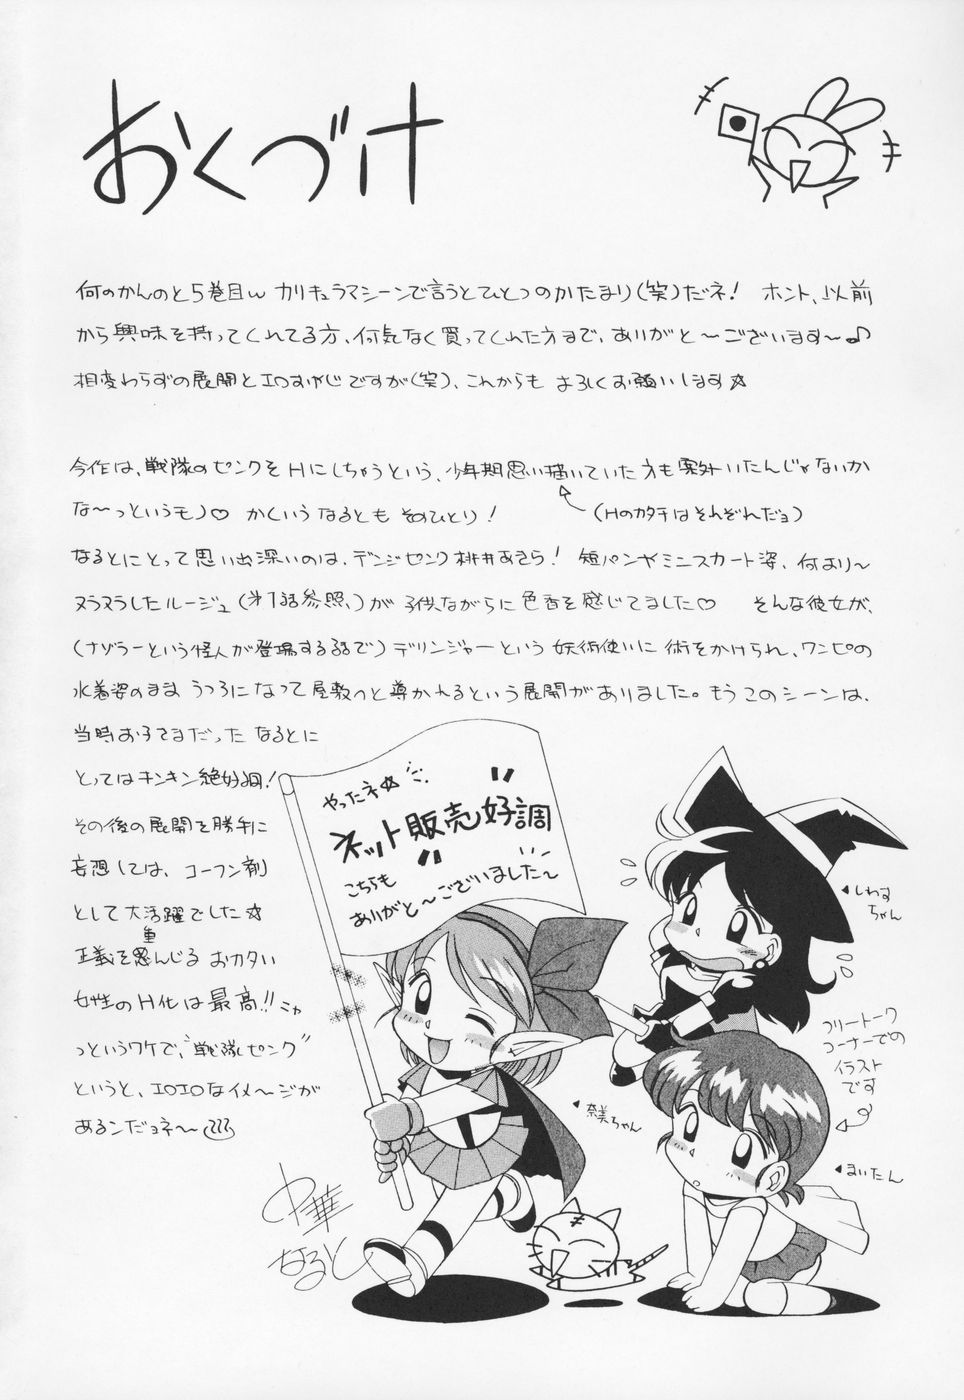 おくづけ
何のかんのと5巻目w カリキュラマシーンで言うとひとつのかたまり(笑)だネ! ホント、以前
から興味を持ってくれてる方、何気なく買ってくれた方まで、ありがと〜ございます〜♪
相変わらずの展開とエロすじですが(笑)、これからも よろしくお願いします☆
今作は、戦隊のピンクをHにしちゃうという、少年期思い描いていた方も案外いたんじゃないか
な〜っというモノ♡ かくいうなるとも そのひとり!
(Hのカタチはそれぞれだョ)
なるとにとって思い出深いのは、デンジピンク桃井あきら! 短パンやミニスカート姿、何より〜
ヌラヌラしたルージュ(第1話参照、)が 子供ながらに 色香を感じてました♡ そんな彼女が、
(ナゾラーという怪人が登場する話で)デリンジャーという 妖術使いに 術をかけられ、ワンピの
水着姿のまま うつろになって屋敷へと導かれるという展開がありました。もう このシーンは、
当時お子さまだった なるとに
とってはキンキン絶好調!
その後の展開を勝手に
妄想しては、コーフン剤
として大活躍でした☆
正義を重んじる おカタい
女性のH化は最高!!ニャ
っというワケで、"戦隊ピンク"
というと、エロエロなイメ〜ジが
あるンだョネ〜
中華
なると
やったネ☆
"ネット販売好調"
こちらも
ありがと〜ございました〜
しわす
ちゃん
フリートーク
コーナーでの
イラスト
です
奈美ちゃん
まいたん